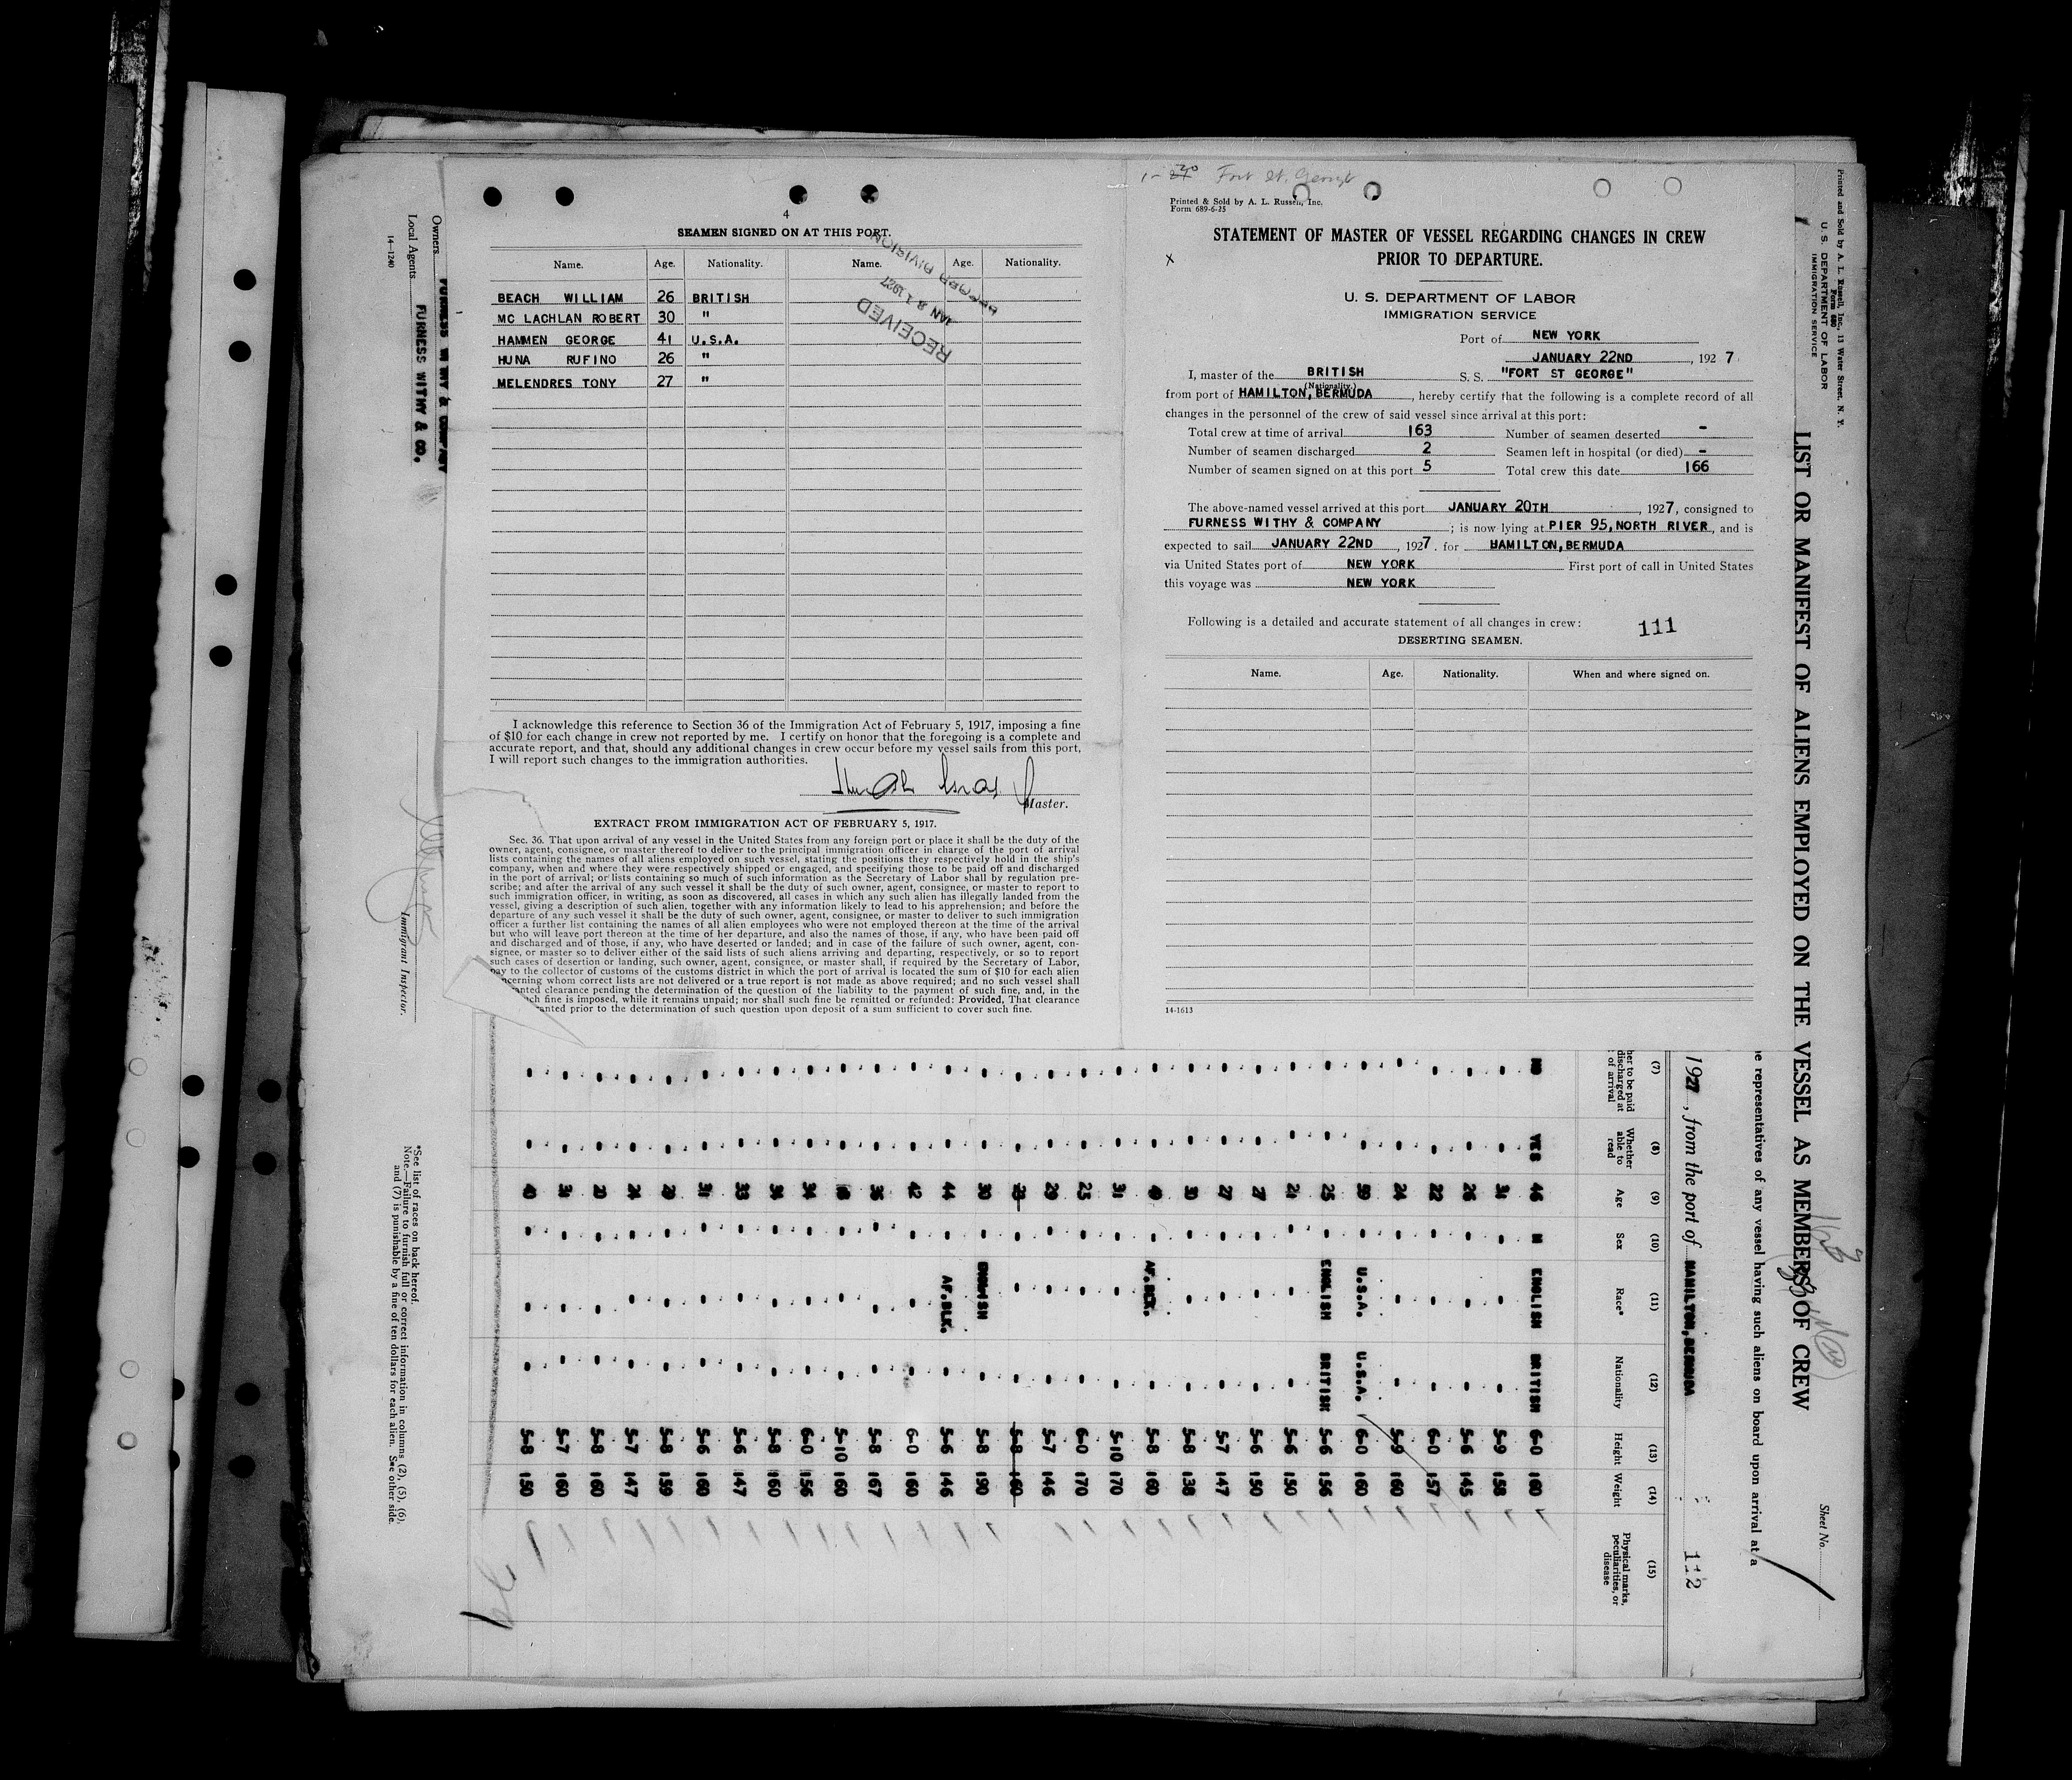 4
SEAMEN SIGNED ON AT THIS PORT.
Name. Age. Nationality. Name. Age. Nationality.
BEACH WILLIAM 26 BRITISH
MC LACHLAN ROBERT 30 "
HAMMEN GEORGE 41 U.S.A.
HUNA RUFINO 26 "
MELENDRES TONY 27 "
RECEIVED
JAN 31 1927
RECORD DIVISION
I acknowledge this reference to Section 36 of the Immigration Act of February 5, 1917, imposing a fine
of $10 for each change in crew not reported by me. I certify on honor that the foregoing is a complete and
accurate report, and that, should any additional changes in crew occur before my vessel sails from this port,
I will report such changes to the immigration authorities.
Master.
EXTRACT FROM IMMIGRATION ACT OF FEBRUARY 5, 1917.
Sec. 36. That upon arrival of any vessel in the United States from any foreign port or place it shall be the duty of the
owner, agent, consignee, or master thereof to deliver to the principal immigration officer in charge of the port of arrival
lists containing the names of all aliens employed on such vessel, stating the positions they respectively hold in the ship's
company, when and where they were respectively shipped or engaged, and specifying those to be paid off and discharged
in the port of arrival; or lists containing so much of such information as the Secretary of Labor shall by regulation pre-
scribe; and after the arrival of any such vessel it shall be the duty of such owner, agent, consignee, or master to report to
such immigration officer, in writing, as soon as discovered, all cases in which any such alien has illegally landed from the
vessel, giving a description of such alien, together with any information likely to lead to his apprehension; and before the
departure of any such vessel it shall be the duty of such owner, agent, consignee, or master to deliver to such immigration
officer a further list containing the names of all alien employees who were not employed thereon at the time of the arrival
but who will leave port thereon at the time of her departure, and also the names of those, if any, who have been paid off
and discharged and of those, if any, who have deserted or landed; and in case of the failure of such owner, agent, con-
signee, or master so to deliver either of the said lists of such aliens arriving and departing, respectively, or so to report
such cases of desertion or landing, such owner, agent, consignee, or master shall, if required by the Secretary of Labor,
pay to the collector of customs of the customs district in which the port of arrival is located the sum of $10 for each alien
concerning whom correct lists are not delivered or a true report is not made as above required; and no such vessel shall
granted clearance pending the determination of the question of the liability to the payment of such fine, and, in the
such fine is imposed, while it remains unpaid; nor shall such fine be remitted or refunded: Provided, That clearance
granted prior to the determination of such question upon deposit of a sum sufficient to cover such fine.
Fort St. George
Printed & Sold by A. L. Russell, Inc.
Form 689-6-25
STATEMENT OF MASTER OF VESSEL REGARDING CHANGES IN CREW
PRIOR TO DEPARTURE.
x
U. S. DEPARTMENT OF LABOR
IMMIGRATION SERVICE
Port of NEW YORK
JANUARY 22ND, 1927
I, master of the BRITISH S. S. "FORT ST GEORGE"
(Nationality.)
from port of HAMILTON, BERMUDA, hereby certify that the following is a complete record of all
changes in the personnel of the crew of said vessel since arrival at this port:
Total crew at time of arrival 163 Number of seamen deserted -
Number of seamen discharged 2 Seamen left in hospital (or died) -
Number of seamen signed on at this port 5 Total crew this date 166
The above-named vessel arrived at this port JANUARY 20TH, 1927, consigned to
FURNESS WITHY & COMPANY; is now lying at PIER 95, NORTH RIVER, and is
expected to sail JANUARY 22ND, 1927. for HAMILTON, BERMUDA
via United States port of NEW YORK First port of call in United States
this voyage was NEW YORK
Following is a detailed and accurate statement of all changes in crew:
111
DESERTING SEAMEN.
Name. Age. Nationality. When and where signed on.
14-1613
Printed and Sold by A. L. Russell, Inc., 13 Water Street, N. Y.
Form 680
U. S. DEPARTMENT OF LABOR
IMMIGRATION SERVICE
LIST OR MANIFEST OF ALIENS EMPLOYED ON THE VESSEL AS MEMBERS OF CREW
Sheet No.
163
representatives of any vessel having such aliens on board upon arrival at a
1927, from the port of HAMILTON, BERMUDA
112
(7) (8) (9) (10) (11) (12) (13) (14) (15)
her to be paid discharged at of arrival
Whether able to read
Age
Sex
Race*
Nationality
Height
Weight
Physical marks, peculiarities, or disease
NO YES 46 M ENGLISH BRITISH 6-0 180
31 5-9 158
26 5-6 145
22 6-0 157
24 5-9 160
59 U.S.A. U.S.A. 6-0 160
25 ENGLISH BRITISH 5-6 156
21 5-6 150
27 5-6 150
27 5-7 147
30 5-8 138
40 AF.BLK. 5-8 160
31 5-10 170
25 6-0 170
29 5-7 146
23 5-8 160
30 ENGLISH 5-8 190
44 AF.BLK. 5-6 146
42 6-0 160
36 5-8 167
18 5-10 160
34 6-0 156
34 5-8 160
33 5-6 147
31 5-6 160
29 5-8 159
24 5-7 147
20 5-8 160
31 5-7 160
40 5-8 150
Owners FURNESS WITHY & COMPANY
Local Agents FURNESS WITHY & CO.
14-1240
Immigrant Inspector.
*See list of races on back hereof.
Note.—Failure to furnish full or correct information in columns (2), (5), (6),
and (7) is punishable by a fine of ten dollars for each alien. See other side.